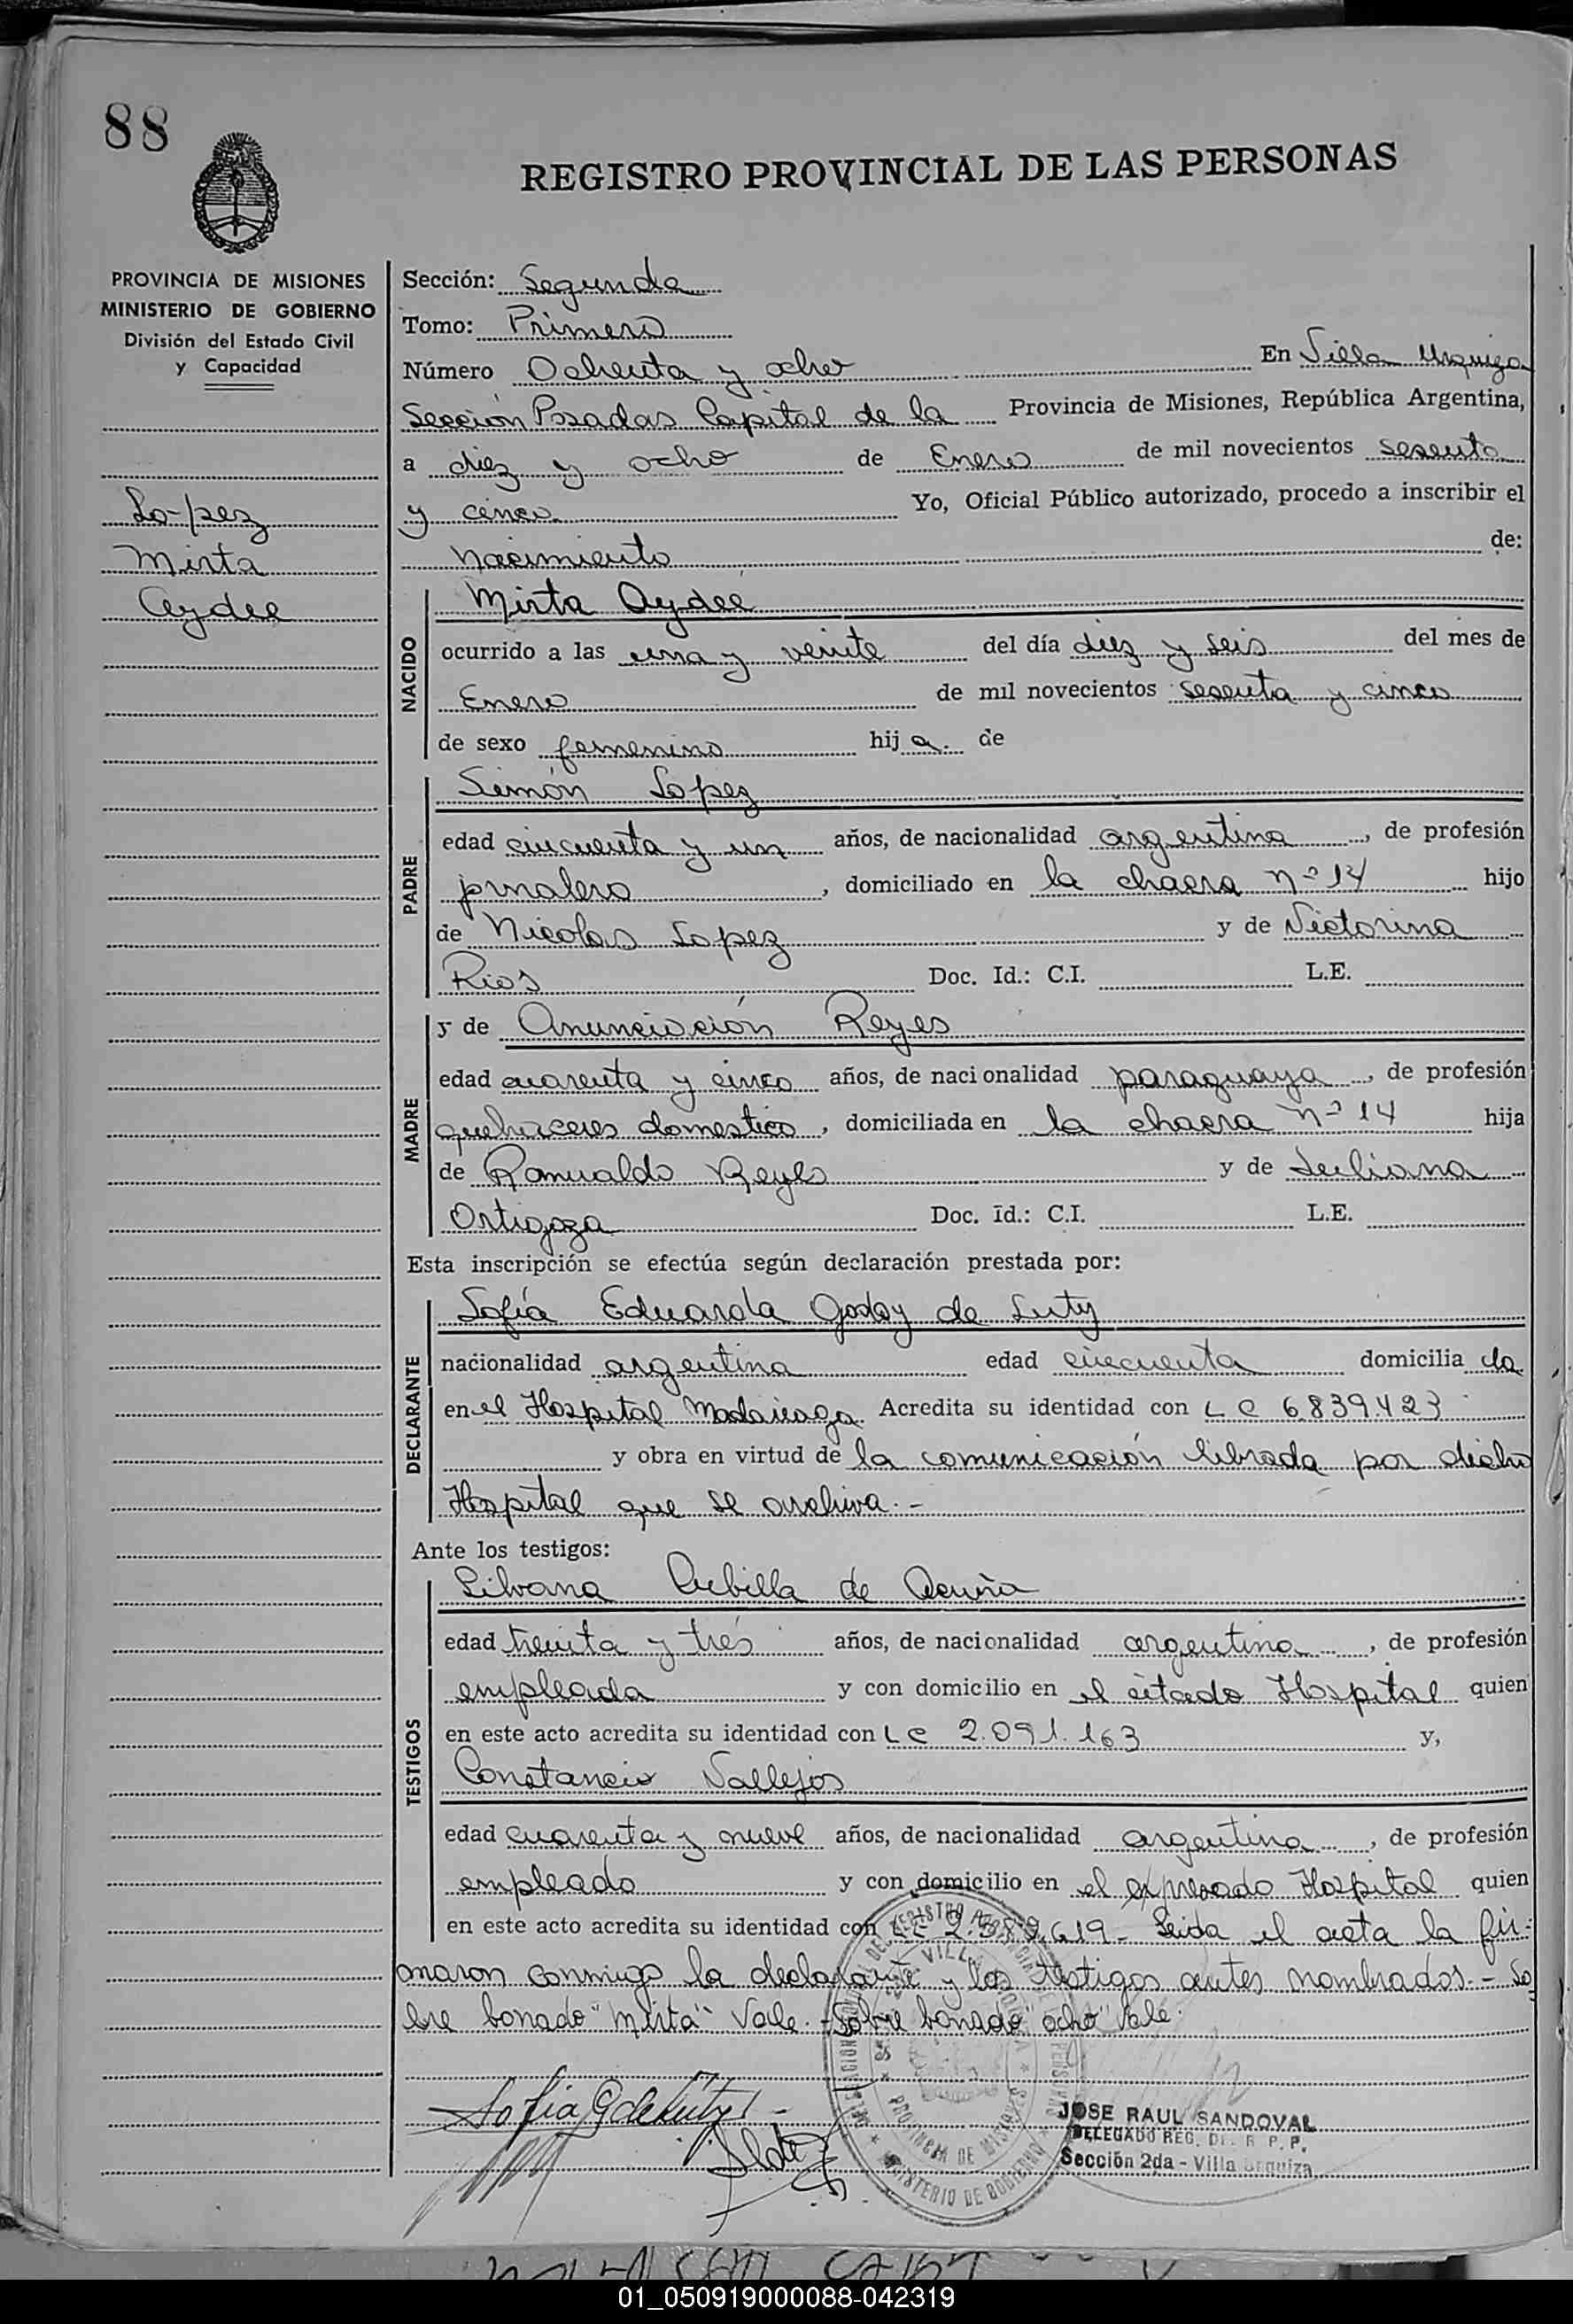 88
REGISTRO PROVINCIAL DE LAS PERSONAS
PROVINCIA DE MISIONES
MINISTERIO DE GOBIERNO
División del Estado Civil
y Capacidad
Lopez
Mirta
Aydee
Sección: Segunda
Tomo: Primero
Número Ochenta y ocho En Villa Urquiza
Sección Posadas Capital de la Provincia de Misiones, República Argentina,
a diez y ocho de Enero de mil novecientos sesenta
y cinco Yo, Oficial Público autorizado, procedo a inscribir el
nacimiento de:
NACIDO
Mirta Aydee
ocurrido a las una y veinte del día diez y seis del mes de
Enero de mil novecientos sesenta y cinco
de sexo femenino hija de
PADRE
Simón Lopez
edad cincuenta y un años, de nacionalidad argentina, de profesión
jornalero, domiciliado en la chacra nº 14 hijo
de Nicolas Lopez y de Victorina
Rios Doc. Id.: C.I. L.E.
MADRE
y de Anunciación Reyes
edad cuarenta y cinco años, de nacionalidad paraguaya, de profesión
quehaceres domestico, domiciliada en la chacra nº 14 hija
de Romualdo Reyes y de Juliana
Ortigoza Doc. Id.: C.I. L.E.
Esta inscripción se efectúa según declaración prestada por:
DECLARANTE
Sofía Eduarda Godoy de Luty
nacionalidad argentina edad cincuenta domiciliada
en el Hospital Madariaga. Acredita su identidad con LC 6839.423
y obra en virtud de la comunicación librada por dicho
Hospital que se archiva.-
Ante los testigos:
TESTIGOS
Silvana Cubilla de Acuña
edad treinta y trés años, de nacionalidad argentina, de profesión
empleada y con domicilio en el citado Hospital quien
en este acto acredita su identidad con LC 2.091.163 y,
Constancio Vallejos
edad cuarenta y nueve años, de nacionalidad argentina, de profesión
empleado y con domicilio en el expresado Hospital quien
en este acto acredita su identidad con 2.389.619- Leida el acta la fir-
maron conmigo la declarante y los testigos antes nombrados.- So
bre borrado "Mirta" Vale.- Sobre borrado "ocho" Vale.
Sofia G de Luty
JOSE RAUL SANDOVAL
DELEGADO REG. DE. R P. P.
Sección 2da - Villa Urquiza
PROVINCIA DE MISIONES
MINISTERIO DE GOBIERNO
01_050919000088-042319